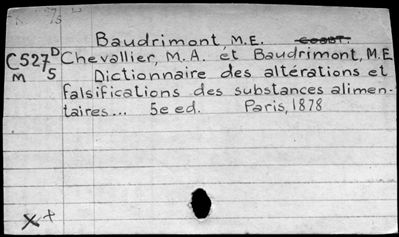 Baudrimont, M.E.
C527 D Chevallier, M.A. et Baudrimont, M.E
M 5 Dictionnaire des altérations et
falsifications des substances alimen-
taires... 5e ed. Paris, 1878
x+